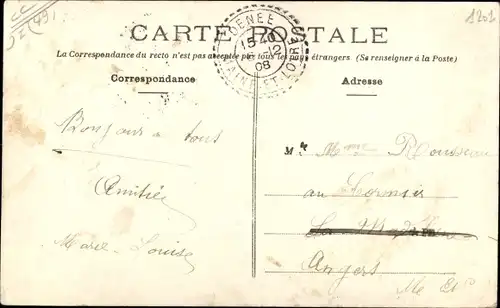 1202
CARTE POSTALE
DENÉE
15 40
12
08
MAINE-ET-LOIRE
La Correspondance du recto n'est pas acceptée par tous les pays étrangers (Se renseigner à la Poste)
Correspondance
Adresse
Bonjour à tous
Amitiés
Marie-Louise
M Mme Rousseau
au
La
Angers